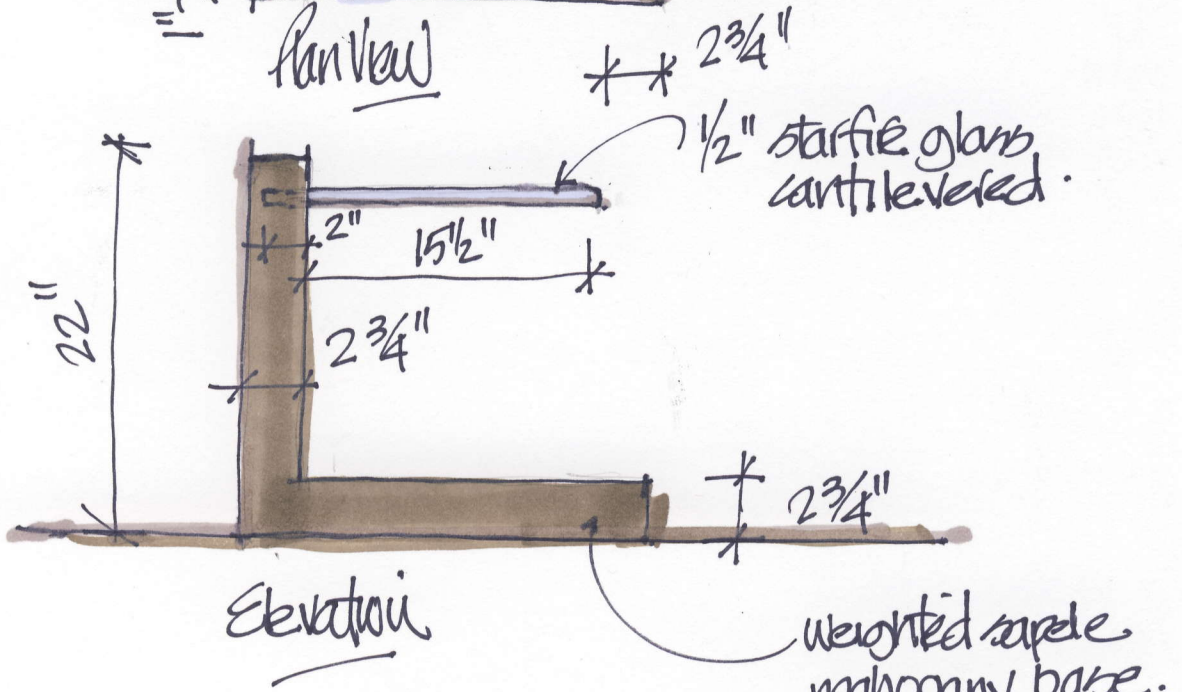 Plan View
2 3/4"
1/2" starfire glass
cantilevered.
2"
15 1/2"
22"
2 3/4"
2 3/4"
Elevation
weighted sapele
mahogany base.